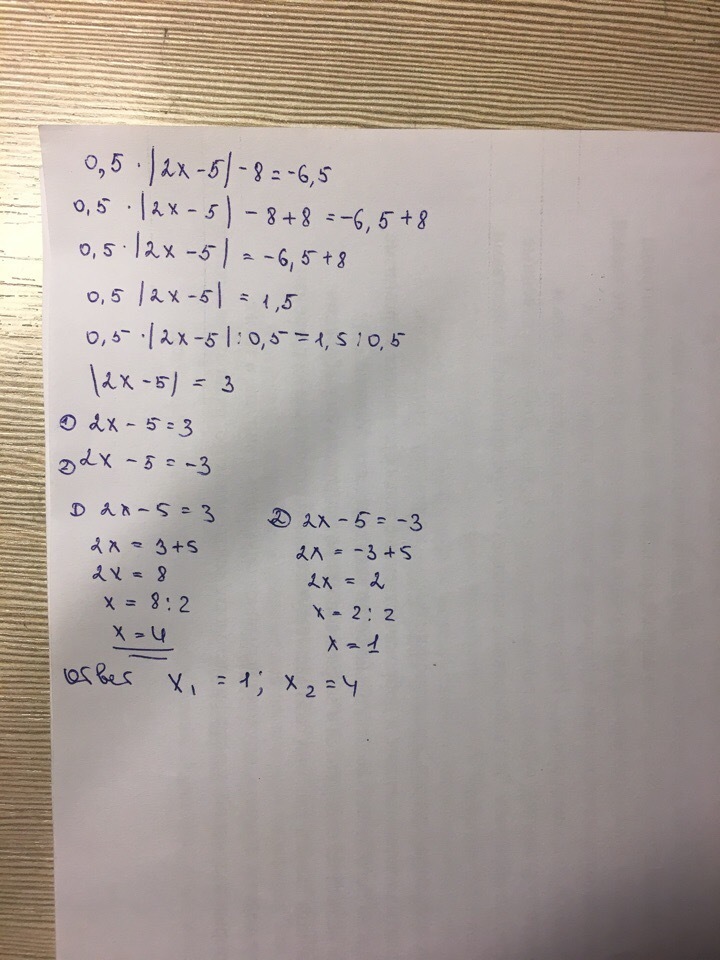 0,5 · |2x - 5| - 8 = -6,5
0,5 · |2x - 5| - 8 + 8 = -6,5 + 8
0,5 · |2x - 5| = -6,5 + 8
0,5 |2x - 5| = 1,5
0,5 · |2x - 5| : 0,5 = 1,5 : 0,5
|2x - 5| = 3
① 2x - 5 = 3
② 2x - 5 = -3
① 2x - 5 = 3
2x = 3 + 5
2x = 8
x = 8 : 2
x = 4
② 2x - 5 = -3
2x = -3 + 5
2x = 2
x = 2 : 2
x = 1
Ответ x₁ = 1; x₂ = 4